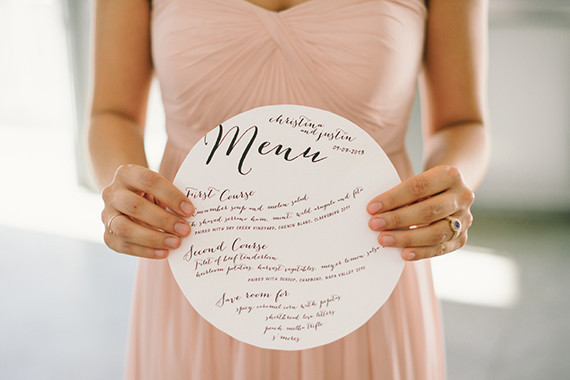 christina
and justin
Menu
09-09-2013
First Course
cucumber soup and melon salad
shaved serrano ham, mint, wild arugula and feta
PAIRED WITH DRY CREEK VINEYARD, CHENIN BLANC, CLARKSBURG 2011
Second Course
Filet of beef tenderloin
heirloom potatoes, harvest vegetables, meyer lemon salsa
PAIRED WITH CHAPPELLET, NAPA VALLEY 2010
Save room for
spicy caramel corn with pepitas
shortbread love letters
peach trifle
s'mores